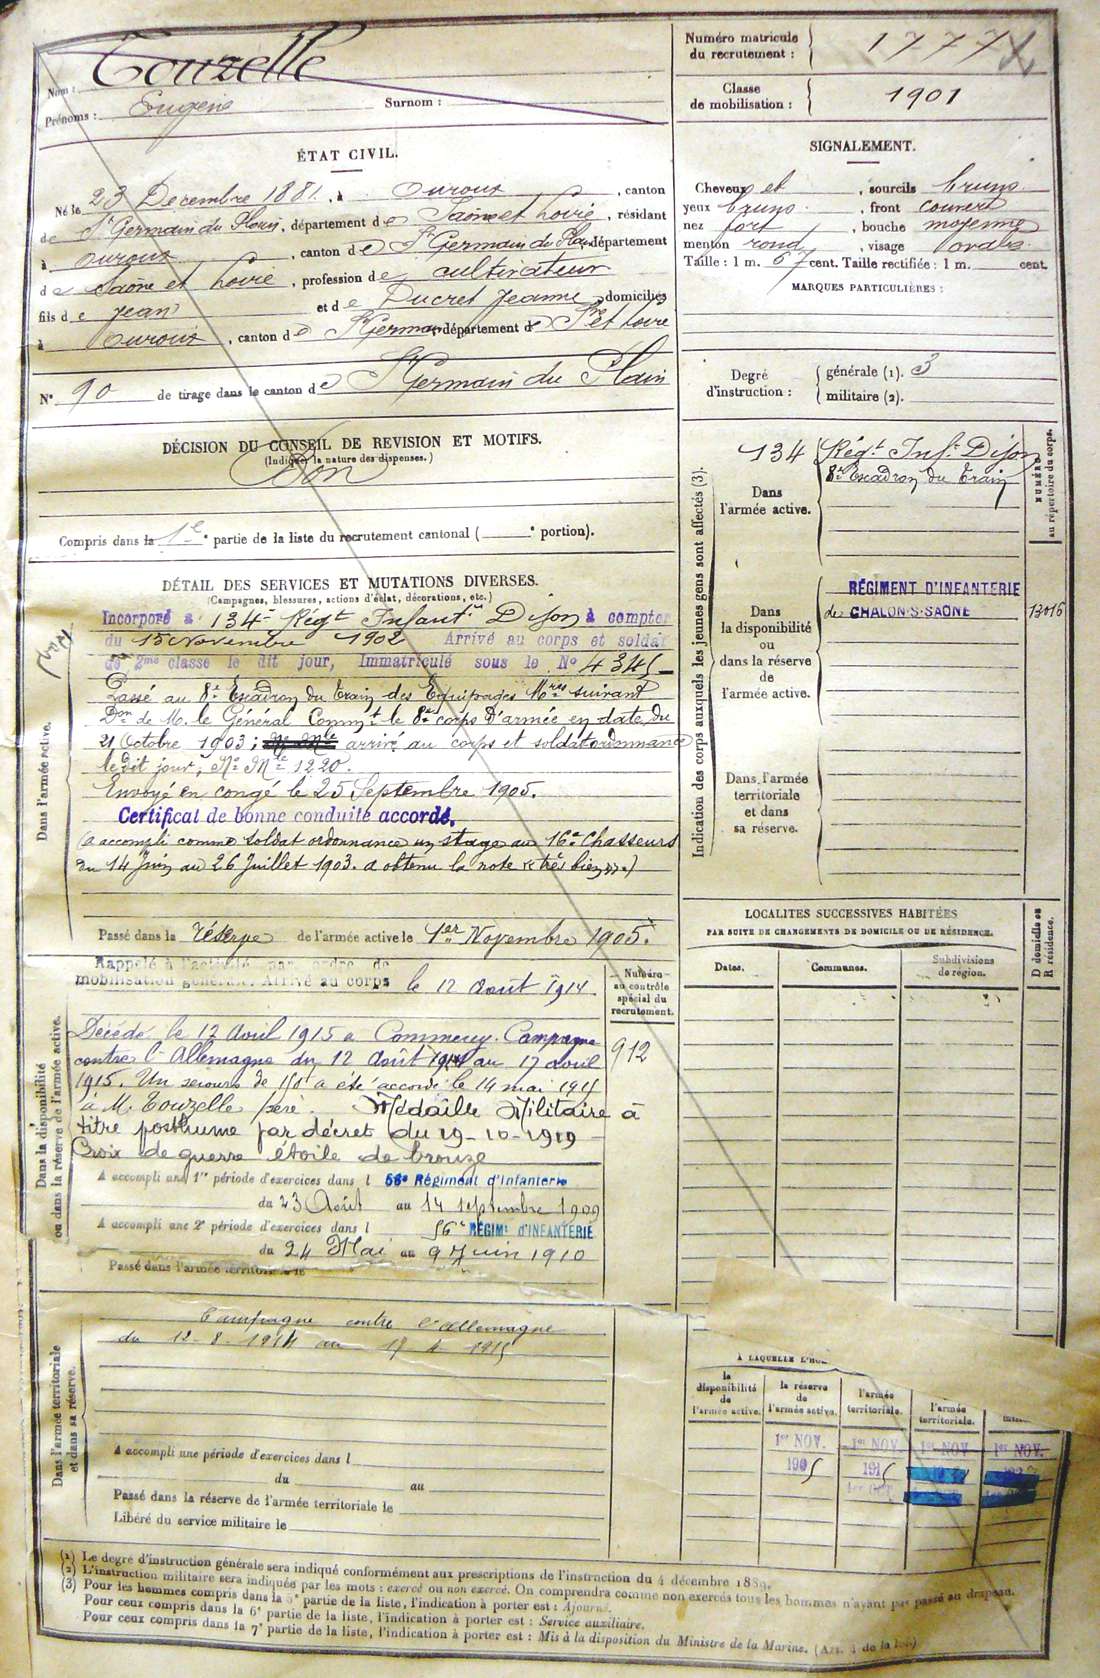 Nom : Touzelle
Prénoms : Eugène Surnom :
Numéro matricule
du recrutement : 1777
Classe
de mobilisation : 1901
ÉTAT CIVIL.
Né le 23 Décembre 1881, à Ouroux, canton
de St Germain du Plain, département de Saône et Loire, résidant
à Ouroux, canton de St Germain du Plain département
de Saône et Loire, profession de cultivateur
fils de Jean et de Ducret Jeanne domiciliés
à Ouroux, canton de St Germain département de Sne et Loire
N° 90 de tirage dans le canton de St Germain du Plain
SIGNALEMENT.
Cheveux et, sourcils bruns
yeux bruns, front couvert
nez fort, bouche moyenne
menton rond, visage ovale
Taille : 1 m. 67 cent. Taille rectifiée : 1 m. cent.
MARQUES PARTICULIÈRES :
Degré
d'instruction :
générale (1). 3
militaire (2).
DÉCISION DU CONSEIL DE REVISION ET MOTIFS.
(Indiquer la nature des dispenses.)
Bon
Compris dans la 1e partie de la liste du recrutement cantonal ( e portion).
DÉTAIL DES SERVICES ET MUTATIONS DIVERSES.
(Campagnes, blessures, actions d'éclat, décorations, etc.)
Dans l'armée active.
Incorporé a 134e Régt Infantie Dijon à compter
du 15 Novembre 1902 Arrivé au corps et soldat
de 2me classe le dit jour, Immatriculé sous le No 4345
Passé au 8e Escadron du Train des Equipages Mres suivant
Don de M. le Général Commt le 8e corps d'armée en date du
21 Octobre 1903; arrivé au corps et soldat ordonnance
le dit jour; No Mle 1220.
Envoyé en congé le 25 Septembre 1905.
Certificat de bonne conduite accordé.
(a accompli comme soldat ordonnance un stage au 16e Chasseurs
du 14 Juin au 26 Juillet 1903. a obtenu la note « très bien ».)
Passé dans la réserve de l'armée active le 1er Novembre 1905.
Dans la disponibilité
ou dans la réserve de l'armée active.
Rappelé à l'activité par ordre de
mobilisation générale. Arrivé au corps le 12 août 1914
Numéro
au contrôle
spécial du
recrutement.
912
Décédé le 17 Avril 1915 à Commercy. Campagne
contre l'Allemagne du 12 Août 1914 au 17 avril
1915. Un secours de 150f a été accordé le 14 mai 1915
à M. Touzelle père. Médaille Militaire à
titre posthume par décret du 19-10-1919
Croix de guerre étoile de bronze
A accompli une 1re période d'exercices dans l 56e Régiment d'Infanterie
du 23 Août au 14 septembre 1909
A accompli une 2e période d'exercices dans l 56e RÉGIMt D'INFANTERIE
du 24 Mai au 9 Juin 1910
Passé dans l'armée territoriale le
Dans l'armée territoriale
et dans sa réserve.
Campagne contre l'Allemagne
du 12-8-1914 au 17 4 1915
A accompli une période d'exercices dans l
du au
Passé dans la réserve de l'armée territoriale le
Libéré du service militaire le
Indication des corps auxquels les jeunes gens sont affectés (3).
Dans
l'armée active.
134 Régt Inft Dijon
8e Escadron du Train
NUMÉRO
au répertoire du corps.
Dans
la disponibilité
ou
dans la réserve
de
l'armée active.
RÉGIMENT D'INFANTERIE
de CHALON-S-SAONE
13016
Dans l'armée
territoriale
et dans
sa réserve.
LOCALITES SUCCESSIVES HABITÉES
PAR SUITE DE CHANGEMENTS DE DOMICILE OU DE RÉSIDENCE.
Dates. Communes. Subdivisions
de région.
D domicile ou
R résidence.
A LAQUELLE L'HO
la
disponibilité
de
l'armée active.
la réserve
de
l'armée active.
l'armée
territoriale.
l'armée
territoriale.
1er NOV. 1er NOV. 1er NOV. 1er NOV.
1905 1915
1er OCT.
(1) Le degré d'instruction générale sera indiqué conformément aux prescriptions de l'instruction du 4 décembre 1889.
(2) L'instruction militaire sera indiquée par les mots : exercé ou non exercé. On comprendra comme non exercés tous les hommes n'ayant pas passé au drapeau.
(3) Pour les hommes compris dans la 5e partie de la liste, l'indication à porter est : Ajourné.
Pour ceux compris dans la 6e partie de la liste, l'indication à porter est : Service auxiliaire.
Pour ceux compris dans la 7e partie de la liste, l'indication à porter est : Mis à la disposition du Ministre de la Marine. (Art. 4 de la loi)